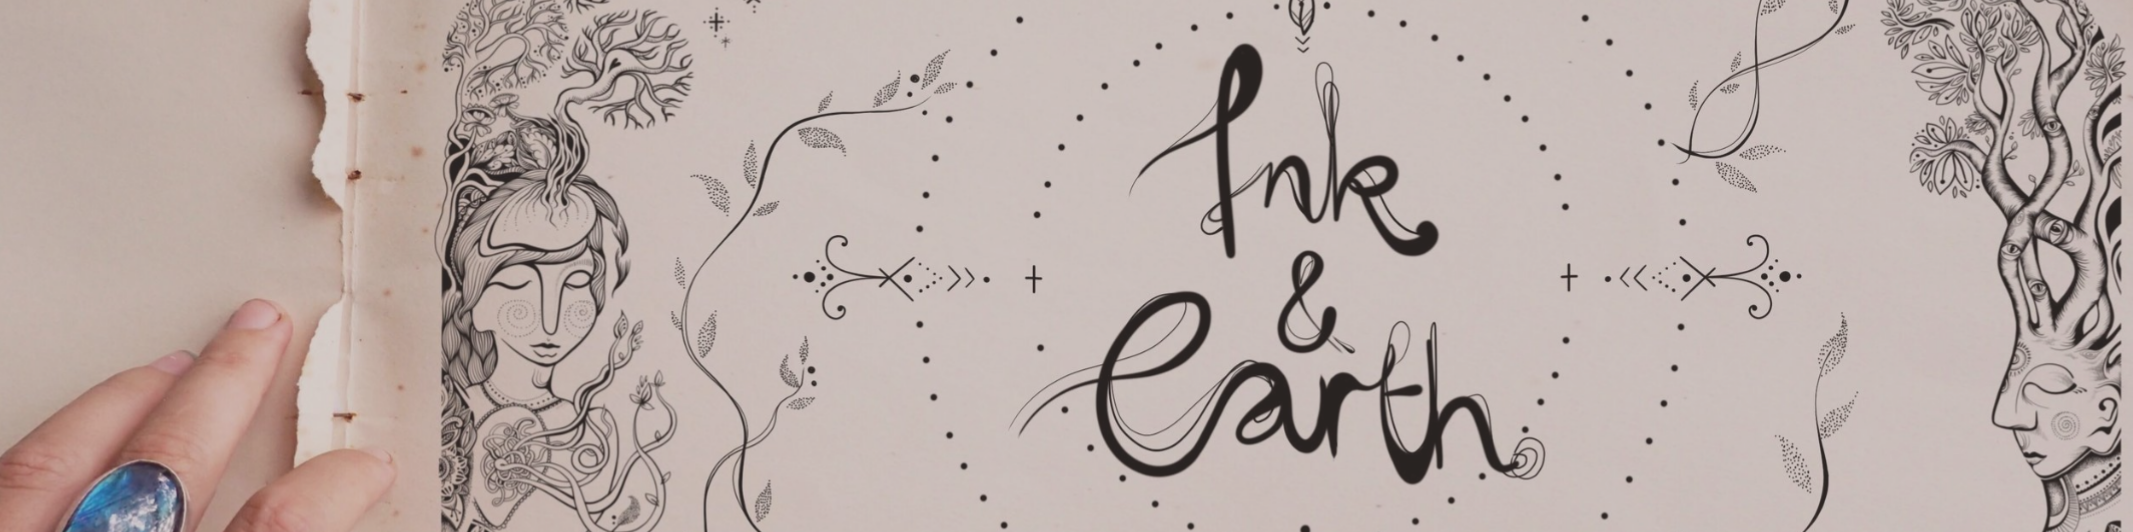 Ink
&
Earth